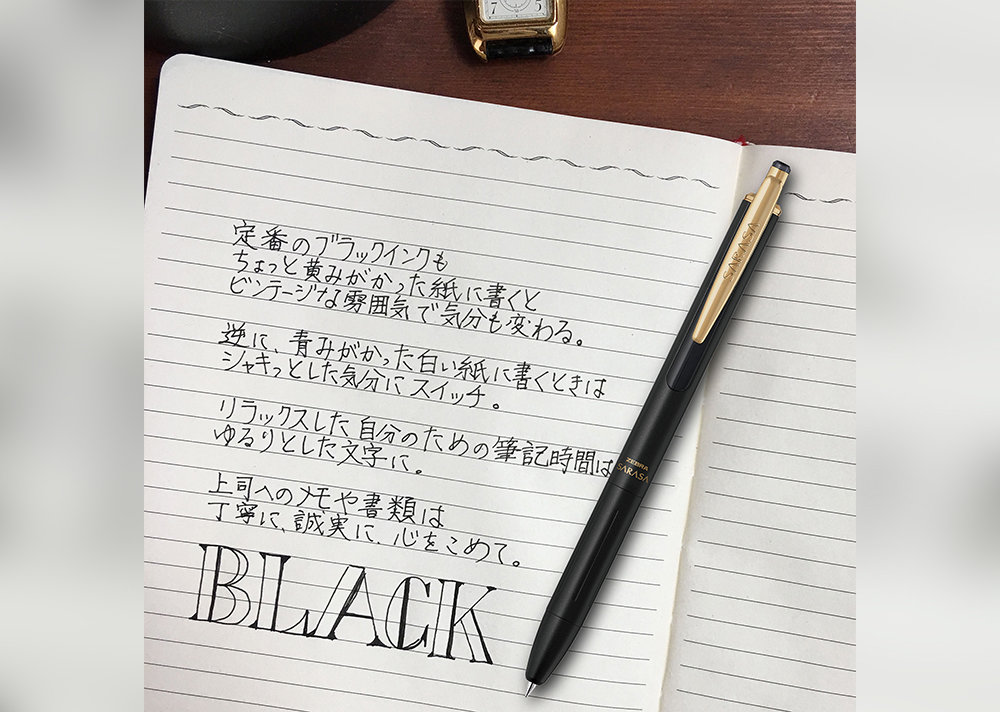 7 5
定番のブラックインクも
ちょっと黄みがかった紙に書くと
ビンテージな雰囲気で気分も変わる。
逆に、青みがかった白い紙に書くときは
シャキっとした気分にスイッチ。
リラックスした自分のための筆記時間は
ゆるりとした文字に。
上司へのメモや書類は
丁寧に、誠実に、心をこめて。
BLACK
SARASA
ZEBRA
SARASA